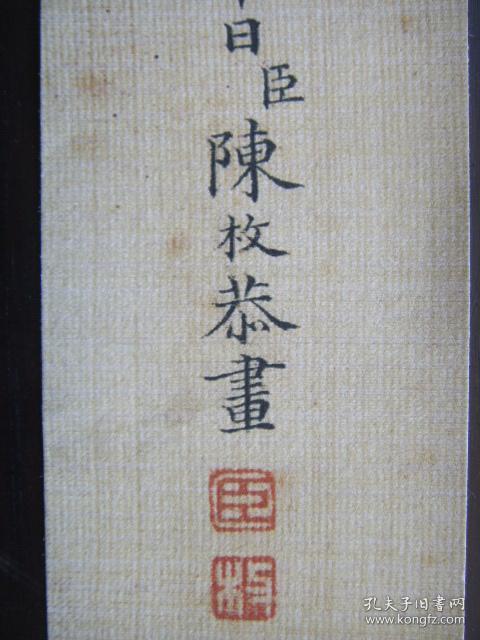 日臣陳枚恭畫
臣
枚
孔夫子旧书网
www.kongfz.com